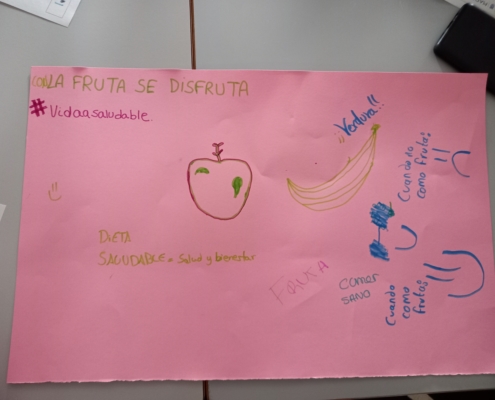 CON LA FRUTA SE DISFRUTA
#Vidasaludable
¡¡Verdura!!
Cuando no
como fruta:
DIETA
SALUDABLE = Salud y bienestar
FRUTA
COMER
SANO
Cuando
como
fruta: